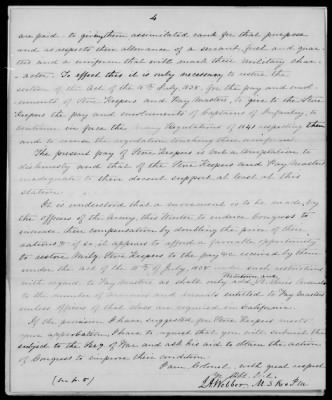 4
are paid - to give them assimilated rank for that purpose
and as respects their allowance of a servant, fuel and quar
ters and a uniform that will mark their military char
acter. To effect this it is only necessary to restore the
section of the Act of the 5th July 1838 for the pay and emol-
uments of Store Keepers and Pay Masters, to give to the Store
Keepers the pay and emoluments of Captains of Infantry, to
continue in force the Army Regulations of 1841 respecting them
and to revive the regulation touching their uniform.
The present pay of Store Keepers is but a temptation to
dishonesty and that of the Store Keepers and Pay Masters
inadequate to their decent support at least at this
station.
It is understood that a movement is to be made, by
the Officers of the Army, this Winter to induce Congress to
increase their compensation by doubling the price of their
rations & if so, it appears to afford a favorable opportunity
to restore Military Store Keepers to the pay &c received by them
under the act of the 5th of July, 1838 with such restrictions
with regard to Pay Masters as shall only add
to the number of Armories and Arsenals entitled to Pay Masters
unless officers of that class are required in California.
If the provision I have suggested for Store Keepers meets
your approbation, I have to request that you will submit the
subject to the Sec'y of War and ask his aid to obtain the action
of Congress to improve their condition.
I am Colonel, with great respect
Webber M. S. K. & P. M.